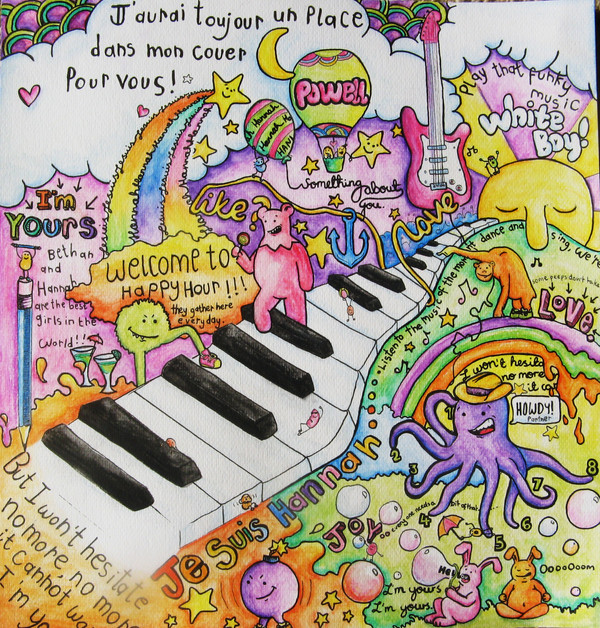 J'aurai toujour un Place
dans mon couer
Pour vous!
POWELL
Hannah
Play that funky
music
White
Boy!
Something about
you.
I'm
YOURS
Bethan
and
Hannah
are the best
girls in the
World!!
like
Love
welcome to
HAPPY HOUR!!!
they gather here
everyday.
dance and
sing, we're
Listen to the music of the moment
some peeps don't have
LOVE
I won't hesita
no more
it ca
HOWDY!
Partner
1
2
3
4
5
6
7
8
But I won't hesitate
no more, no more
it cannot wa
I'm yo
Je Suis Hannah
JOY
everyone needs
bit of that...
He
I'm yours
I'm yours.
OoooOoom